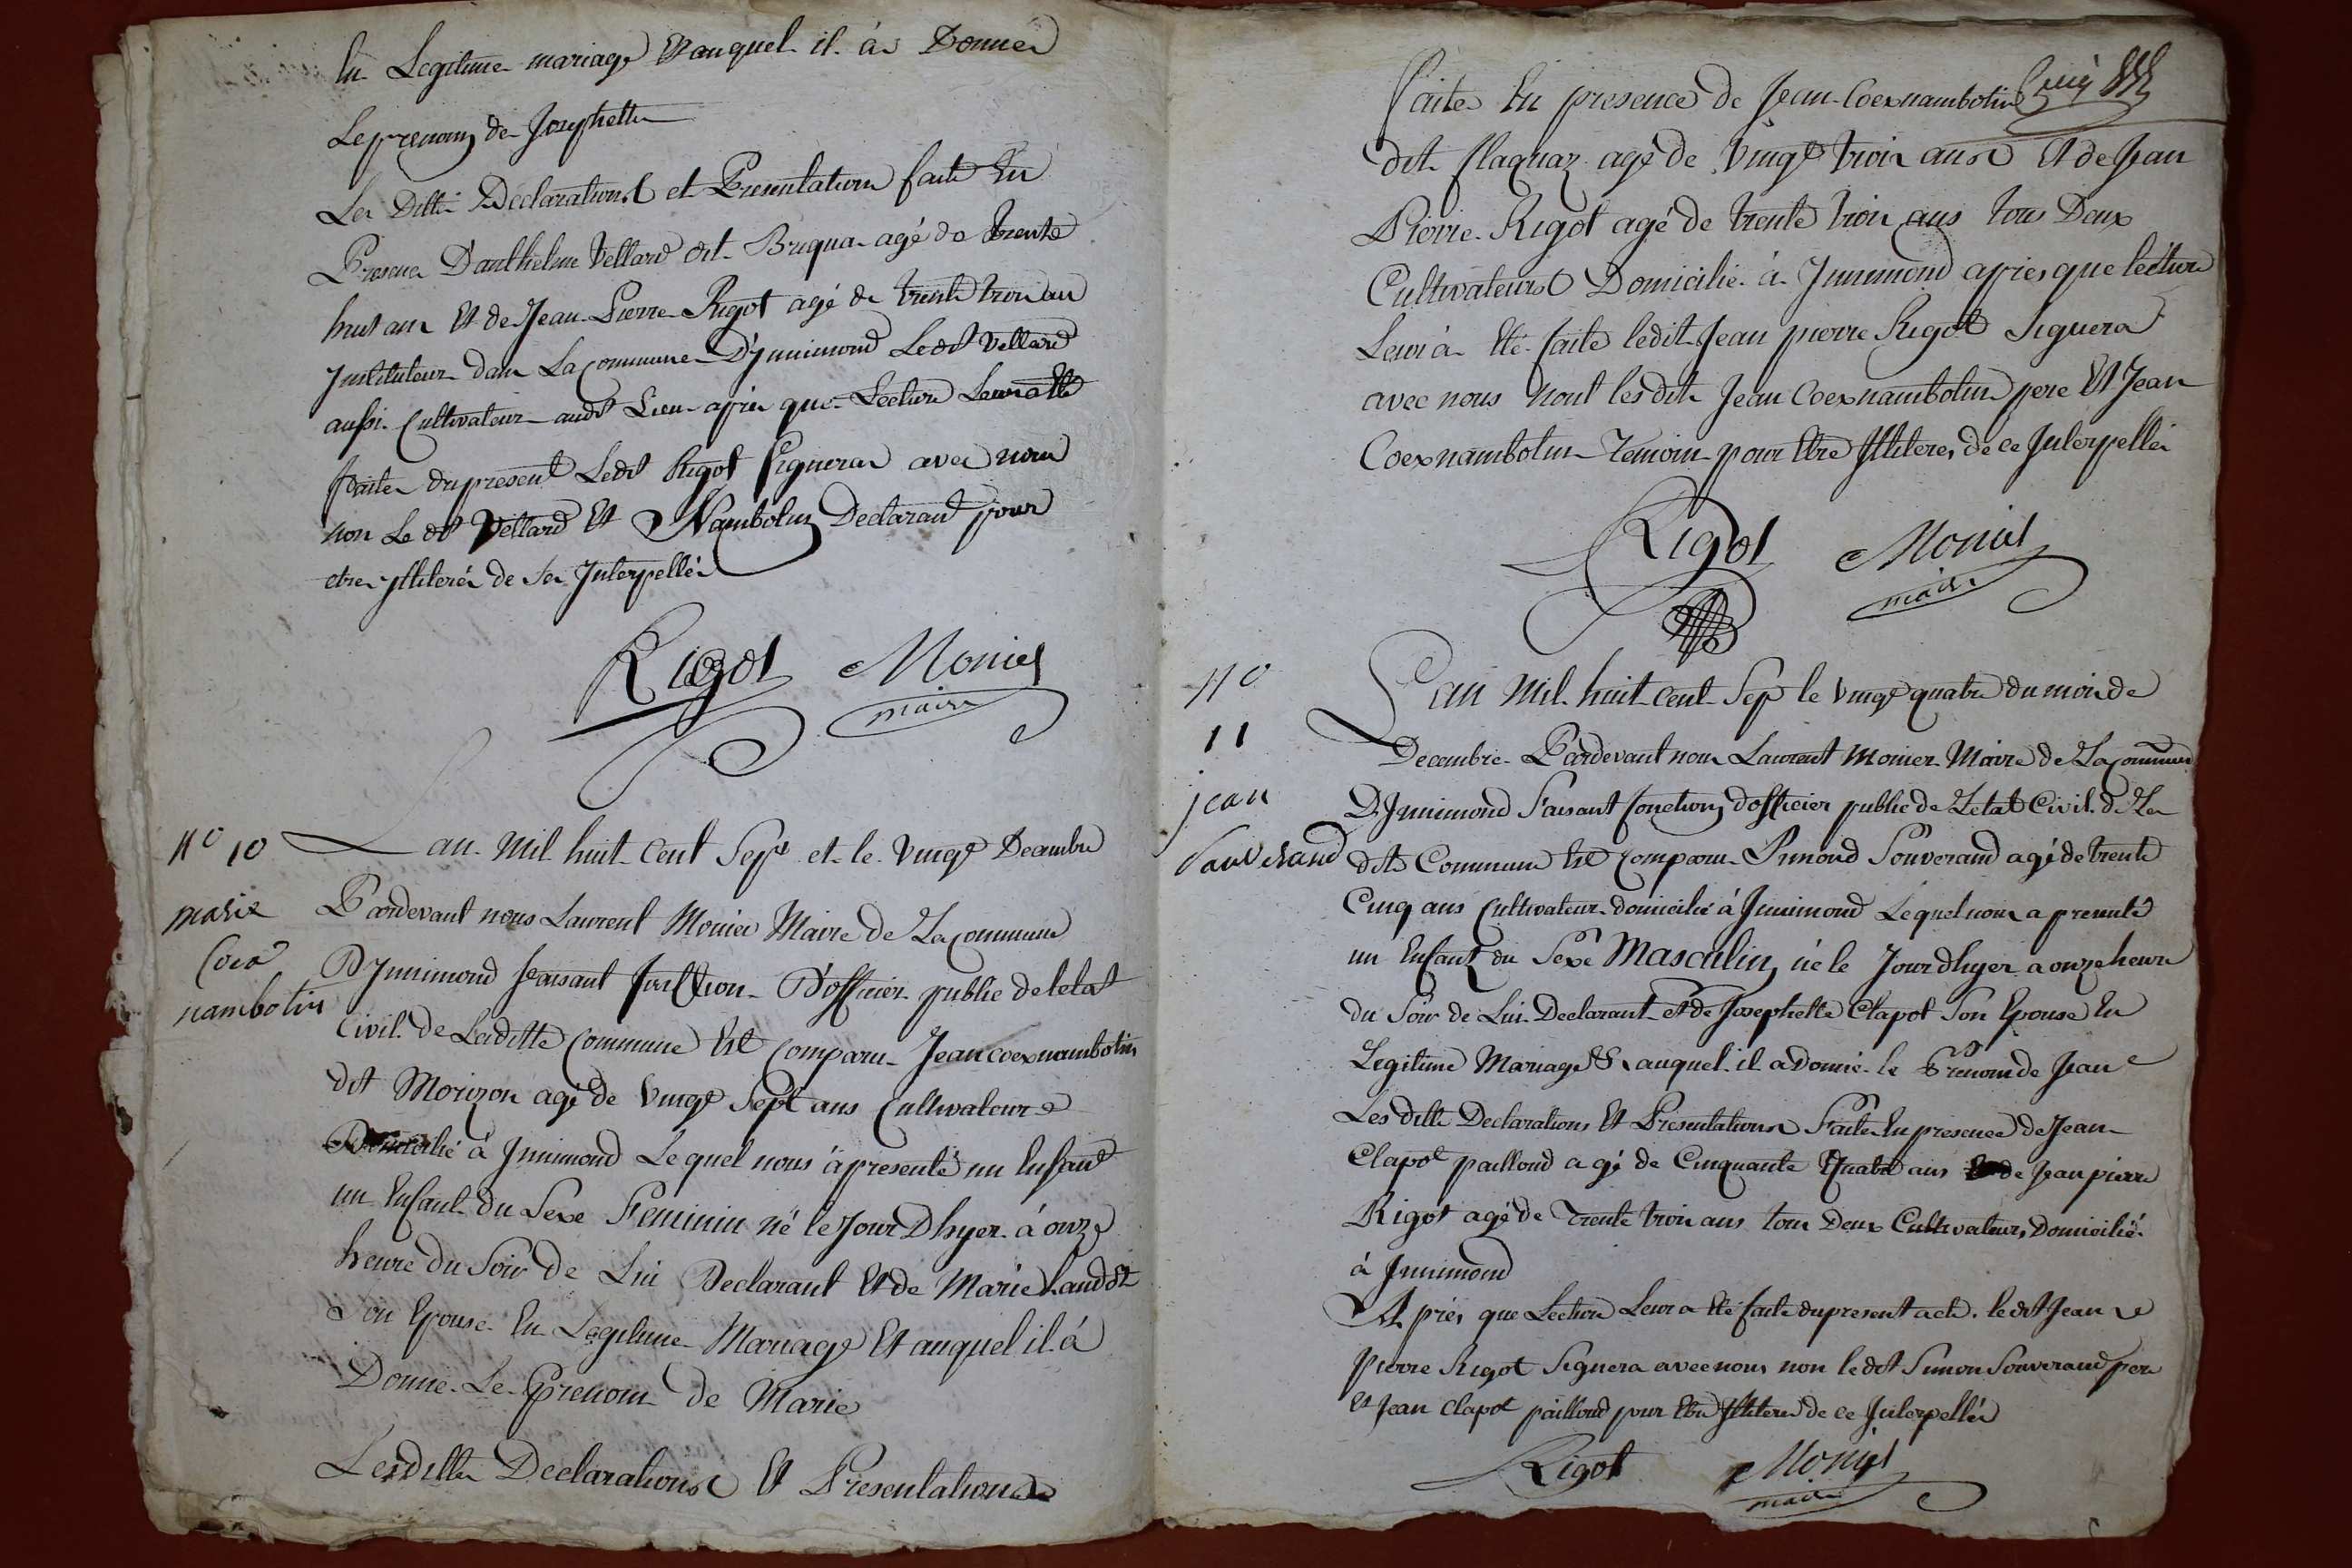 En Legitime mariage Et auquel il à Donné
Le prenom de Josephette
Les Dittes Declarations et Presentation faite En
Presence D'anthelme Vellard dit Briqua agé de trente
huit ans Et de Jean Pierre Rigot agé de trente trois ans
Jnstituteur dans La Commune D'Jnnimond Ledit Vellard
aussi Cultivateur audit Lieu apres que Lecture Leur a Eté
faite du present Ledit Rigot Signeras avec nous
non Le dit Vellard Et Nambotin Declarant pour
etre jlliterés de se Jnterpellés
Rigot Monier
maire
N° 10
marie
Coex
nambotin
Lan mil huit Cent Sept et le Vingt Decembre
Pardevant nous Laurent Monier Maire de La Commune
D'Jnnimond faisant fonction D'officier public de letat
Civil de Laditte Commune Est Comparu Jean coexnambotin
dit Morizon agé de Vingt Sept ans Cultivateur
Domicilié à Jnnimond Lequel nous à presenté un Enfant
un Enfant du Sexe Feminin né le Jour Dhyer à onze
heure du Soir de Lui Declarant Et de Marie
Son Epouse En Legitime Mariage Et auquel il à
Donné Le Prenom de Marie
Lesdittes Declarations Et Presentations
faites En presence de Jean Coexnambotin
dit flaquaz agé de Vingt trois ans Et de Jean
Pierre Rigot agé de trente trois ans tous Deux
Cultivateurs Domicilié à Jnnimond apres que lecture
Leur à Eté faite ledit Jean pierre Rigot Signera
avec nous nont lesdit Jean Coexnambotin pere Et Jean
Coexnambotin Temoin pour Etre Jlliteres de ce Jnterpellés
Rigot Monier
maire
N°
11
jean
Souverand
Lan Mil huit cent Sept le Vingt quatre du mois de
Decembre Pardevant nous Laurent Monier Maire de La Commune
D'Jnnimond Faisant fonctions dofficier public de Letat Civil de La
dite Commune Est Comparu Simond Souverand agé de trente
Cinq ans Cultivateur domicilié à Jnnimond Lequel nous a presenté
un Enfant du Sexe Masculin né le Jour dhyer a onze heure
du Soir de Lui Declarant et de Josephette Clapot Son Epouse En
Legitime Mariage Et auquel il a Donné le Prenom de Jean
Les ditte Declarations Et Presentations Faites En presence de Jean
Clapot paillond agé de Cinquante Quatre ans Et de Jean pierre
Rigot agé de Trente trois ans tous Deux Cultivateurs Domicilié
à Jnnimond
Aprés que Lecture Leur a Eté faite du present acte ledit Jean
Pierre Rigot Signera avec nous non le dit Simon Souverand pere
Et Jean Clapot paillond pour Etre Jlliteres de ce Jnterpellés
Rigot Monier
maire